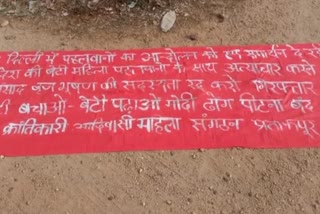 दिल्ली में पहलवानों का आन्दोलन को हम समर्थन दे रहे
की बेटी महिला पहलवानों के साथ अत्याचार करने
भूषण की सदस्यता रद्द करो गिरफ्तार
बचाओ - बेटी पढ़ाओ मोदी ढोंग पीटना बंद
क्रांतिकारी आदिवासी महिला संगठन